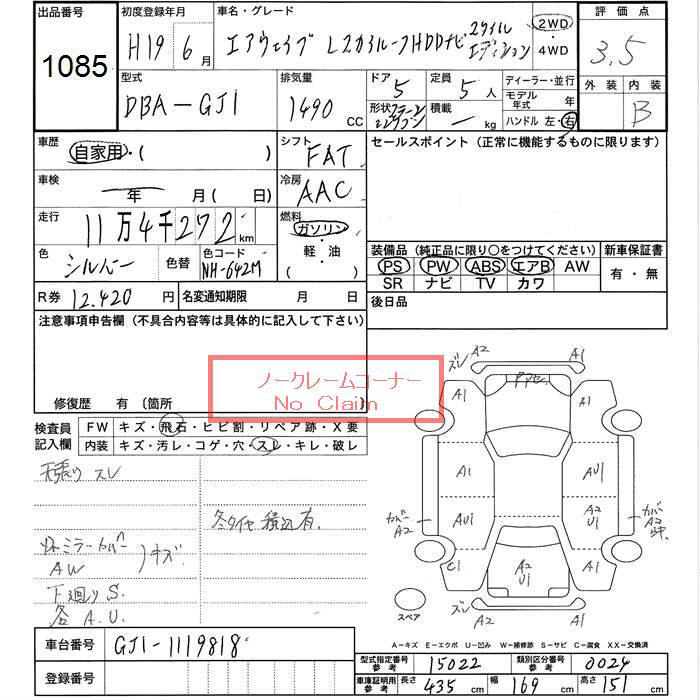 出品番号
1085
初度登録年月
H19 6月
車名・グレード
エアウェイブ Lスカイルーフ HDDナビ スタイルエディション
2WD・4WD
評価点
3.5
型式
DBA-GJ1
排気量
1490 CC
ドア 5
形状 ステーションワゴン
定員 5人
積載 - kg
ディーラー・並行
モデル年式 年
ハンドル 左・右
外装 内装
B
車歴
自家用・( )
シフト FAT
セールスポイント (正常に機能するものに限ります)
車検
年 月(日)
冷房 AAC
走行
11万4千272km
燃料
ガソリン・軽・油
( )
色
シルバー
色替
色コード
NH-642M
装備品 (純正品に限り〇をつけてください)
新車保証書
PS PW ABS エアB AW
SR ナビ TV カワ
有・無
R券 12,420円
名変通知期限 月 日
後日品
注意事項申告欄 (不具合内容等は具体的に記入して下さい)
ノークレームコーナー
No Claim
修復歴 有 (箇所 )
検査員記入欄
FW キズ・飛石・ヒビ割・リペア跡・X要
内装 キズ・汚レ・コゲ・穴・スレ・キレ・破レ
天張り スレ
冬タイヤ積込有.
ミラーカバー
AW
キズ
下廻りS.
各A.U.
ズレ A2 A1
A1 A1
A1 AU1
AU1 A2 U1
カバー A2
カバー A2
C1 A2 U1 A1
ズレ A2 A1
スペア
車台番号 GJ1-1119818
登録番号
A-キズ E-エクボ U-凹み W-補修跡 S-サビ C-腐食 XX-交換済
型式指定番号 参考 15022
類別区分番号 参考 0024
車庫証明用 参考 長さ 435cm 幅 169cm 高さ 151cm